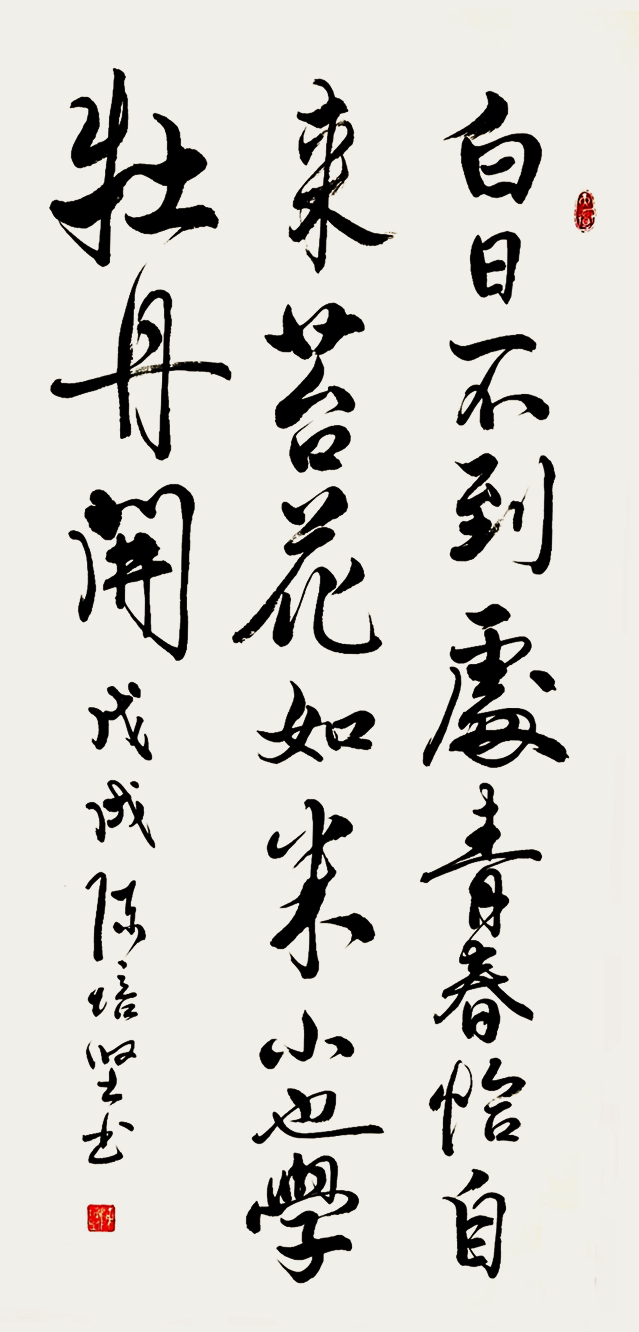 白日不到處青春怡自
來苔花如米小也學
牡丹開
戊戌陈培坚书